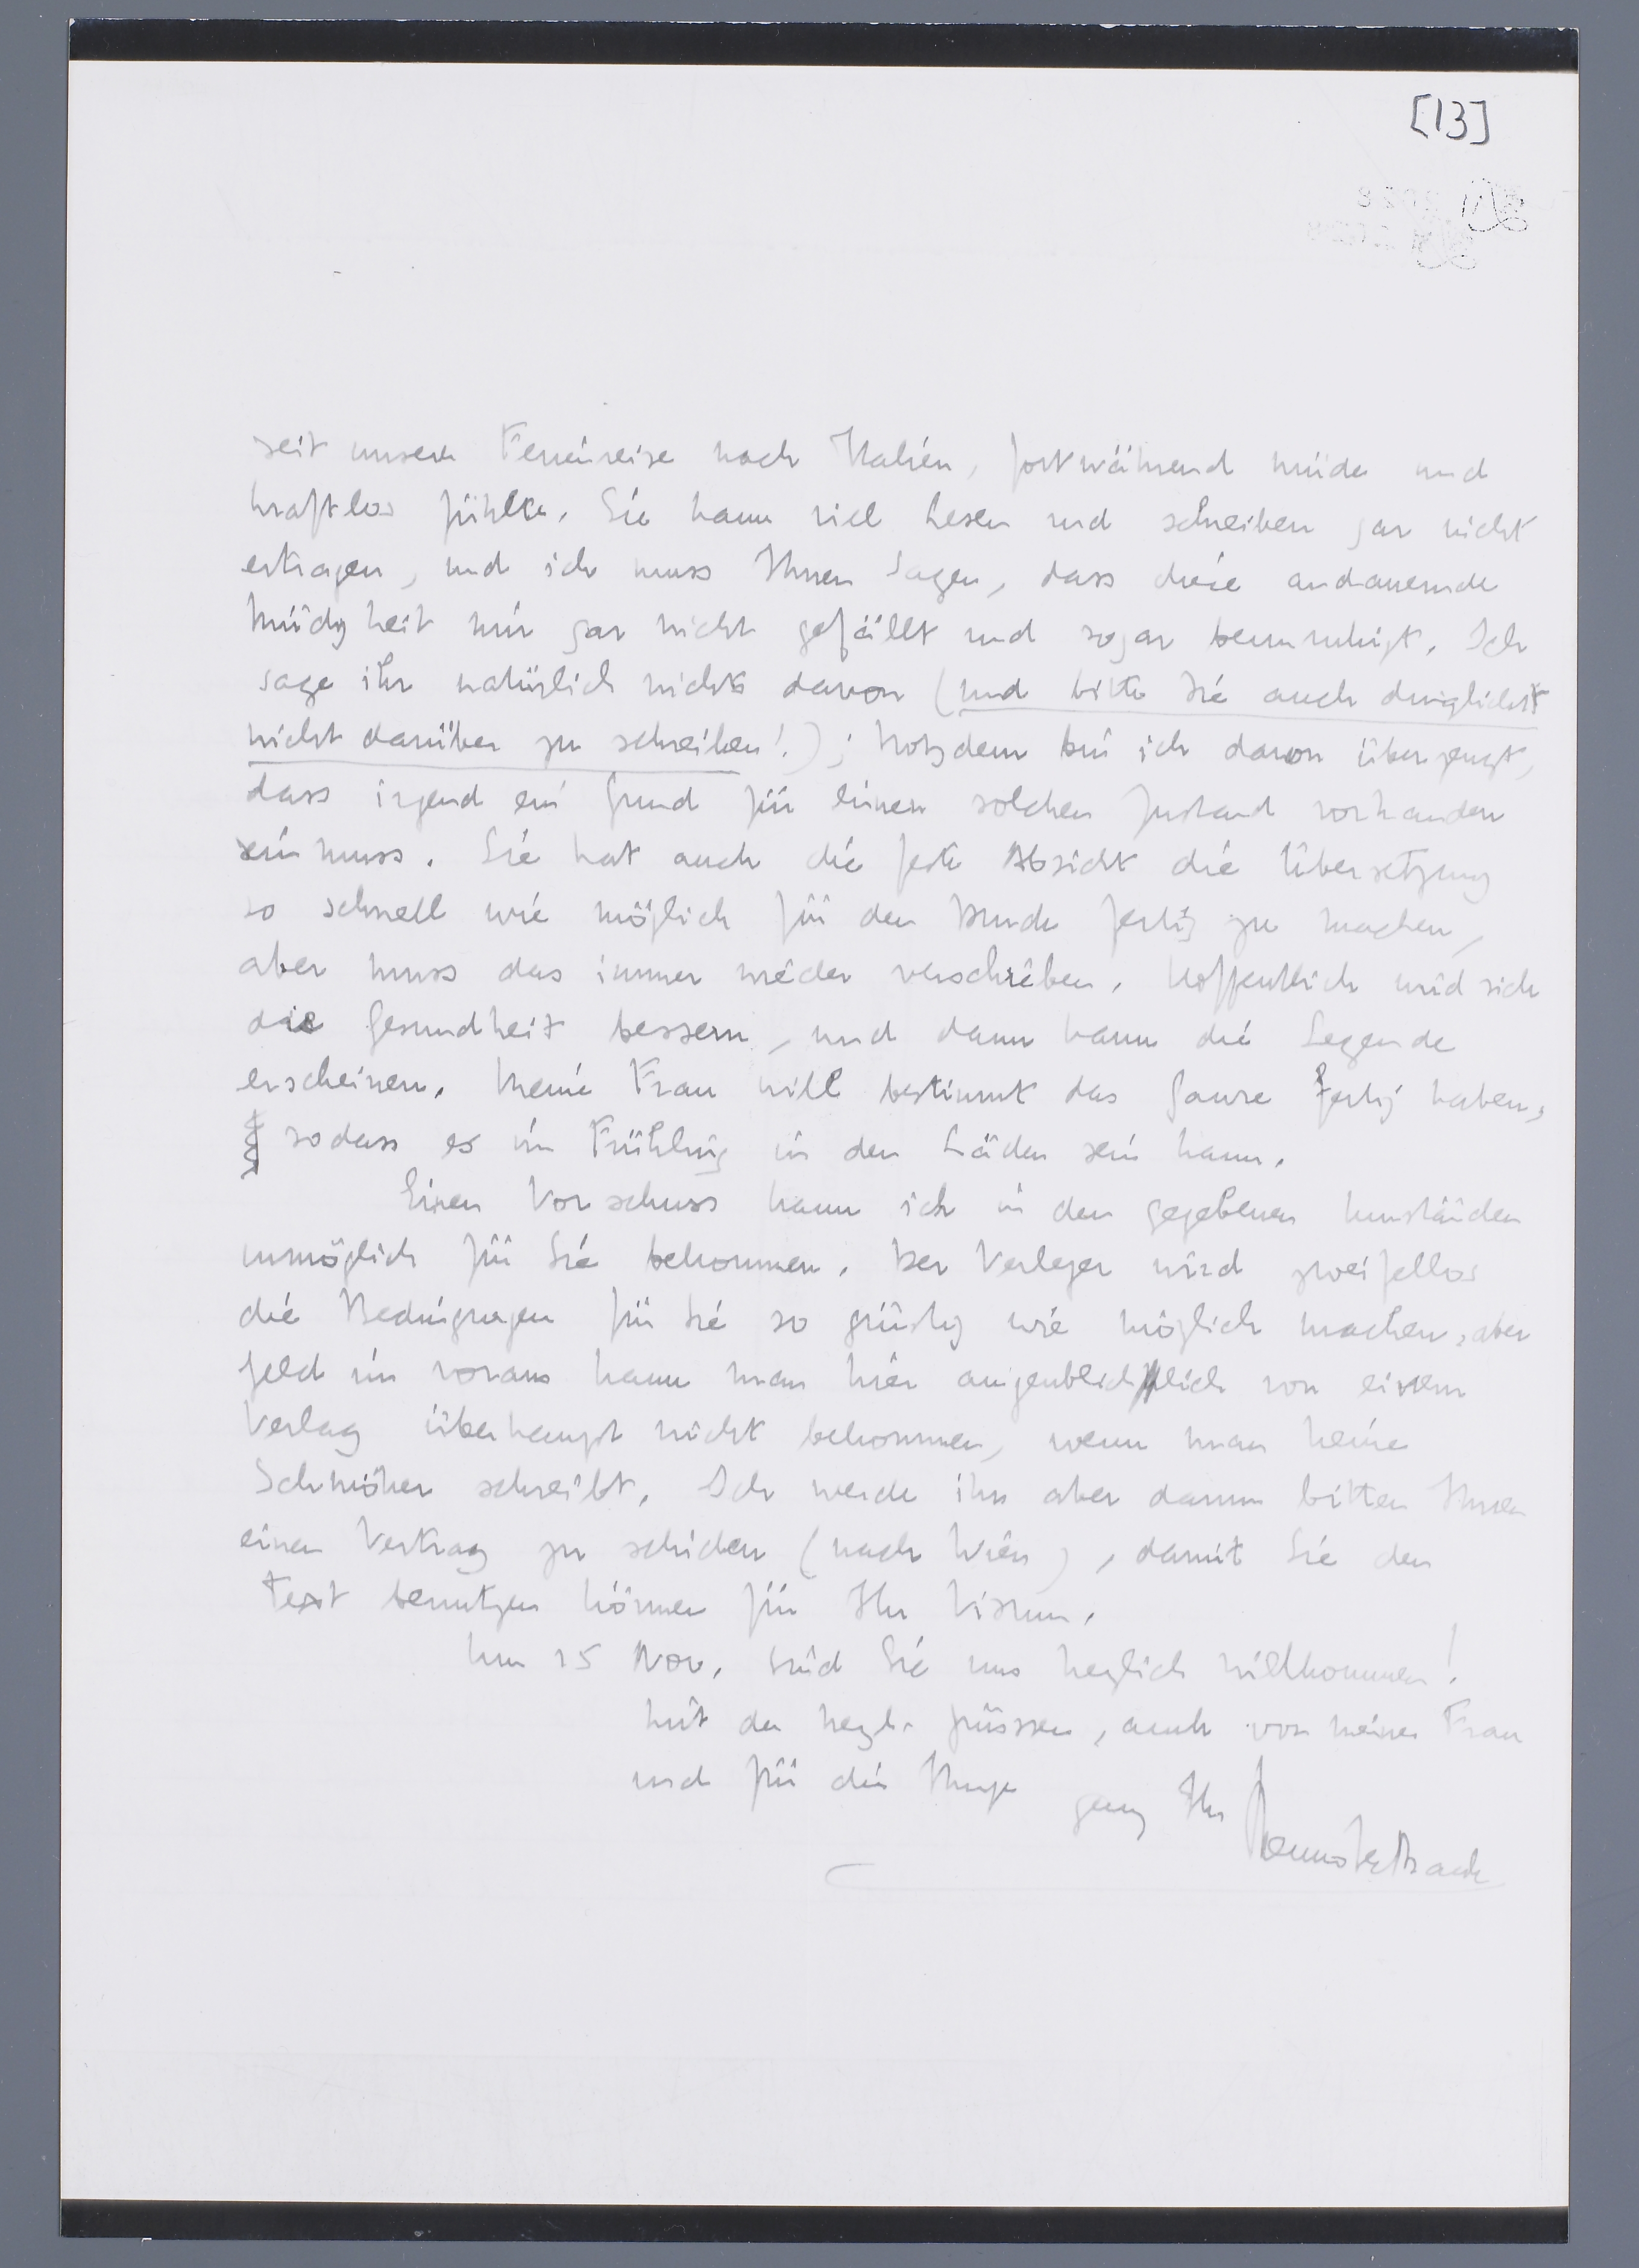 [13]
seit unserer Ferienreise nach Italien, fortwährend müde und
kraftlos fühlte. Sie kann viel Lesen und schreiben gar nicht
ertragen, und ich muss Ihnen sagen, dass diese andauernde
Müdigkeit mir gar nicht gefällt und sogar beunruhigt. Ich
sage ihr natürlich nichts davon (und bitte Sie auch dringlichst
nicht darüber zu schreiben!); trotzdem bin ich davon überzeugt,
dass irgend ein Grund für einen solchen Zustand vorhanden
sein muss. Sie hat auch die feste Absicht die Übersetzung
so schnell wie möglich für den Druck fertig zu machen,
aber muss das immer wieder verschieben. Hoffentlich wird sich
die Gesundheit bessern, und dann kann die Legende
erscheinen. Meine Frau will bestimmt das Ganze fertig haben,
sodass es im Frühling in den Läden sein kann.
Einen Vorschuss kann ich in den gegebenen Umständen
unmöglich für Sie bekommen. Der Verleger wird zweifellos
die Bedingungen für Sie so günstig wie möglich machen, aber
Geld im voraus kann man hier augenblicklich von einem
Verlag überhaupt nicht bekommen, wenn man keine
Schmöker schreibt. Ich werde ihn aber darum bitten Ihnen
einen Vertrag zu schicken (nach Wien), damit Sie den
Text benutzen können für Ihr Visum.
Um 15 Nov. sind Sie uns herzlich willkommen!
Mit den herzl. Grüssen, auch von meiner Frau
und für die
ganz Ihr